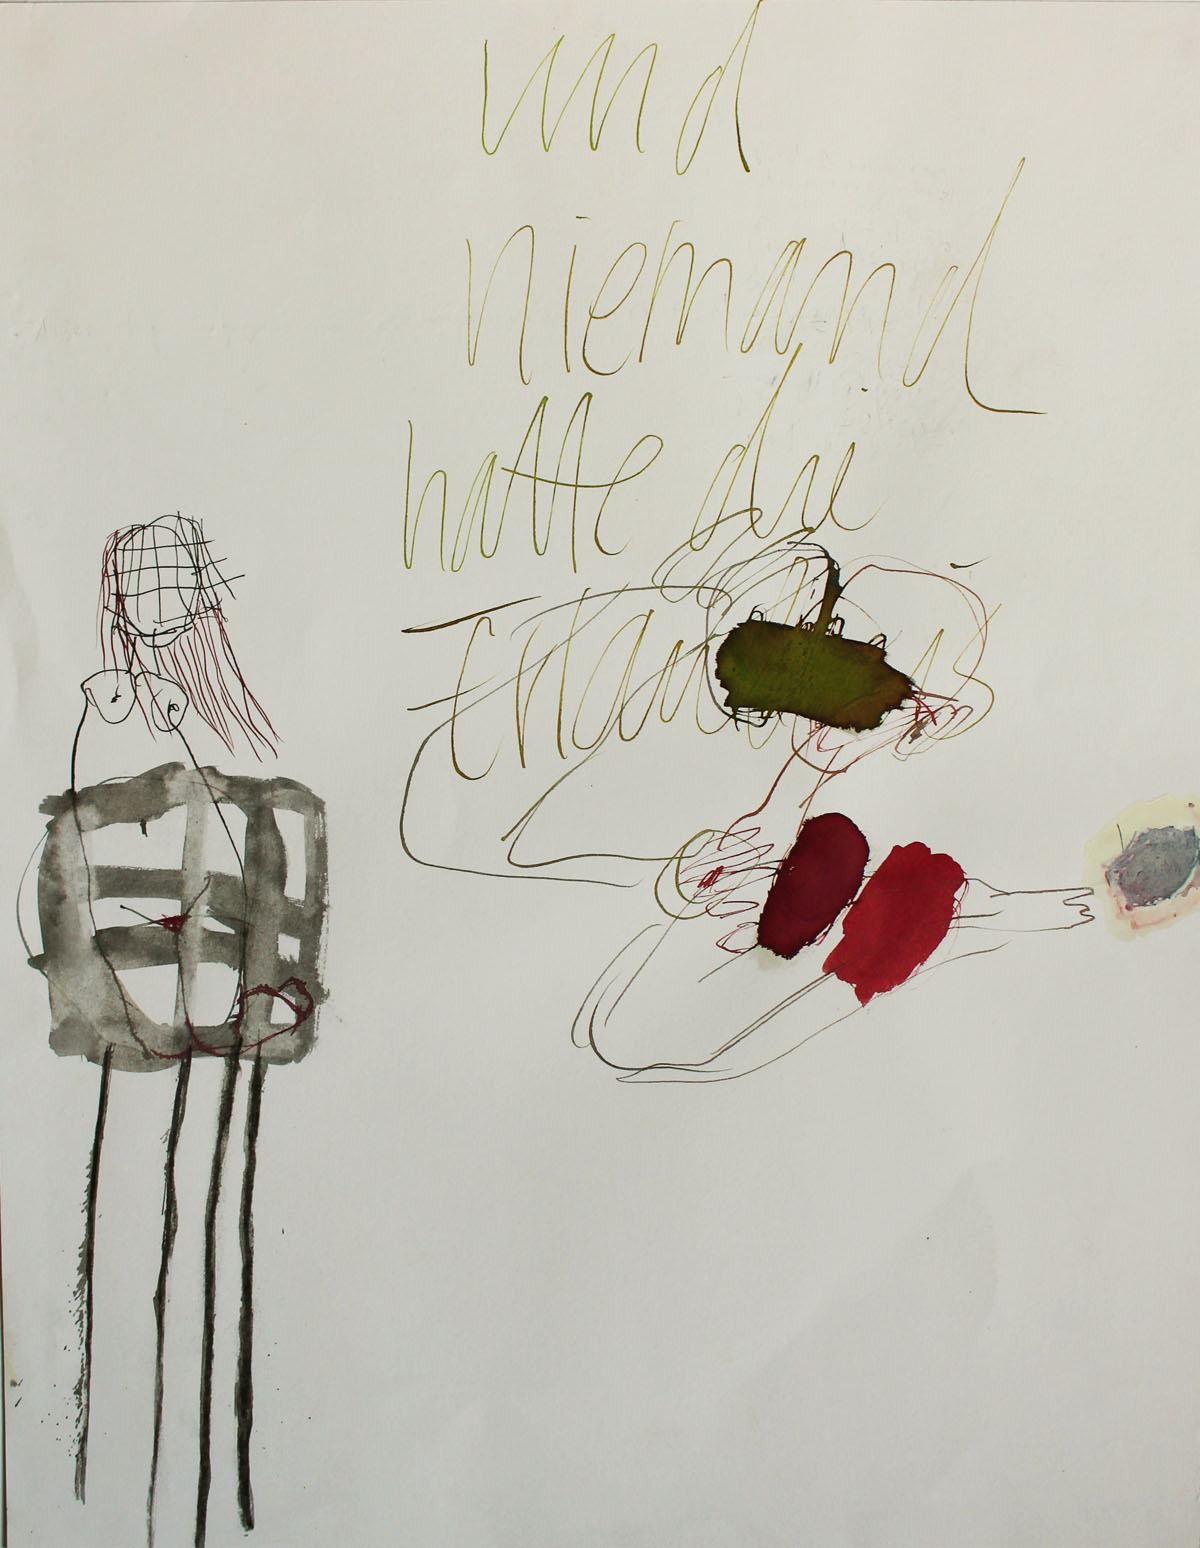 und
niemand
hatte die
Erlaubnis